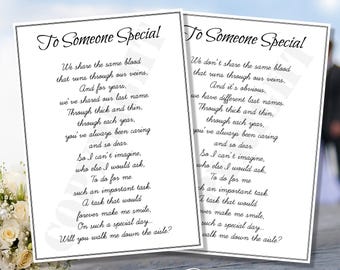 To Someone Special
We share the same blood
that runs through our veins,
And for years,
we've shared our last name.
Through thick and thin,
through each year,
you've always been caring
and so dear.
So I can't imagine,
who else I would ask,
To do for me
such an important task.
A task that would
forever make me smile,
On such a special day...
Will you walk me down the aisle?
To Someone Special
We don't share the same blood
that runs through our veins,
And it's obvious,
we have different last names.
Through thick and thin,
through each year,
you've always been caring
and so dear.
So I can't imagine,
who else I would ask,
To do for me
such an important task.
A task that would
forever make me smile,
On such a special day...
Will you walk me down the aisle?